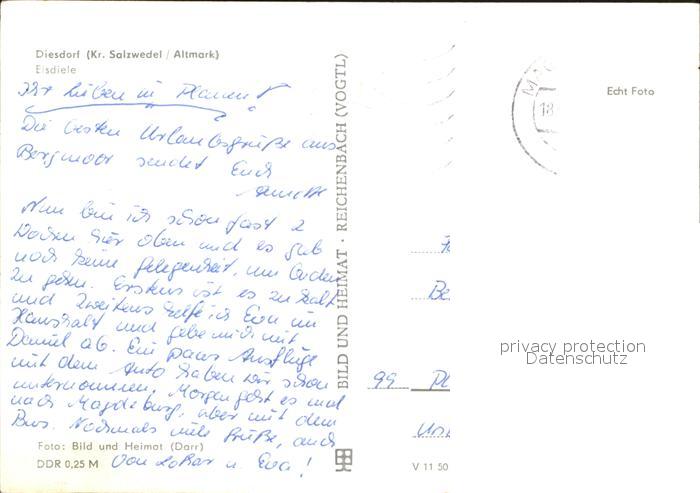 Diesdorf (Kr. Salzwedel / Altmark)
Eisdiele
Ihr Lieben in Plauen!
Die besten Urlaubsgrüße aus
Bergmoor sendet Euch
Nun bin ich schon fast 2
Wochen hier oben und es gab
noch keine Gelegenheit, um baden
zu gehen. Erstens ist es zu kalt
und zweitens helfe ich Eva im
Haushalt und gebe mich mit
Daniel ab. Ein paar Ausflüge
mit dem Auto haben wir schon
unternommen. Morgen geht es mal
nach Magdeburg, aber mit dem
Bus. Nochmals viele Grüße, auch
von Lothar u. Eva!
Foto: Bild und Heimat (Darr)
DDR 0,25 M
BILD UND HEIMAT · REICHENBACH (VOGTL)
V 11 50
Echt Foto
18
Be
99 Pl
privacy protection
Datenschutz